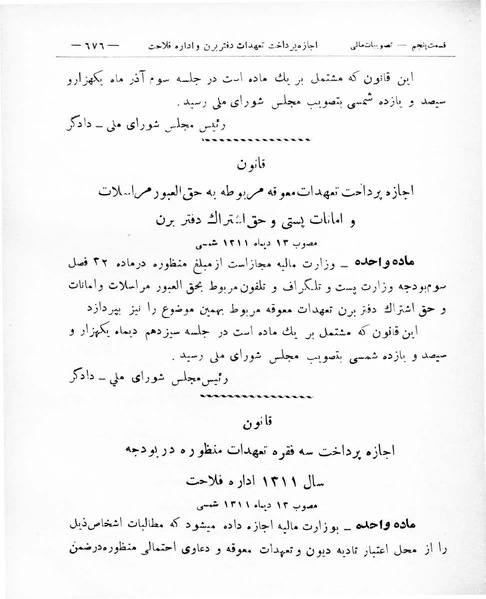 قسمت پنجم — تصویبات مالی    اجازه پرداخت تعهدات دفتر برن و اداره فلاحت    — ٦٧٦ —
این قانون که مشتمل بر یك ماده است در جلسه سوم آذر ماه یکهزار و
سیصد و یازده شمسی بتصویب مجلس شورای ملی رسید.
رئیس مجلس شورای ملی ـ دادگر
قانون
اجازه پرداخت تعهدات معوقه مربوطه به حق العبور مراسلات
و امانات پستی و حق اشتراك دفتر برن
مصوب ۱۳ دیماه ۱۳۱۱ شمسی
ماده واحده ـ وزارت مالیه مجاز است از مبلغ منظوره در ماده ۳۲ فصل
سوم بودجه وزارت پست و تلگراف و تلفون مربوط بحق العبور مراسلات و امانات
و حق اشتراك دفتر برن تعهدات معوقه مربوط بهمین موضوع را نیز بپردازد
این قانون که مشتمل بر یك ماده است در جلسه سیزدهم دیماه یکهزار و
سیصد و یازده شمسی بتصویب مجلس شورای ملی رسید.
رئیس مجلس شورای ملی ـ دادگر
قانون
اجازه پرداخت سه فقره تعهدات منظوره در بودجه
سال ۱۳۱۱ اداره فلاحت
مصوب ۱۳ دیماه ۱۳۱۱ شمسی
ماده واحده ـ بوزارت مالیه اجازه داده میشود که مطالبات اشخاص ذیل
را از محل اعتبار تادیه دیون و تعهدات معوقه و دعاوی احتمالی منظوره در ضمن